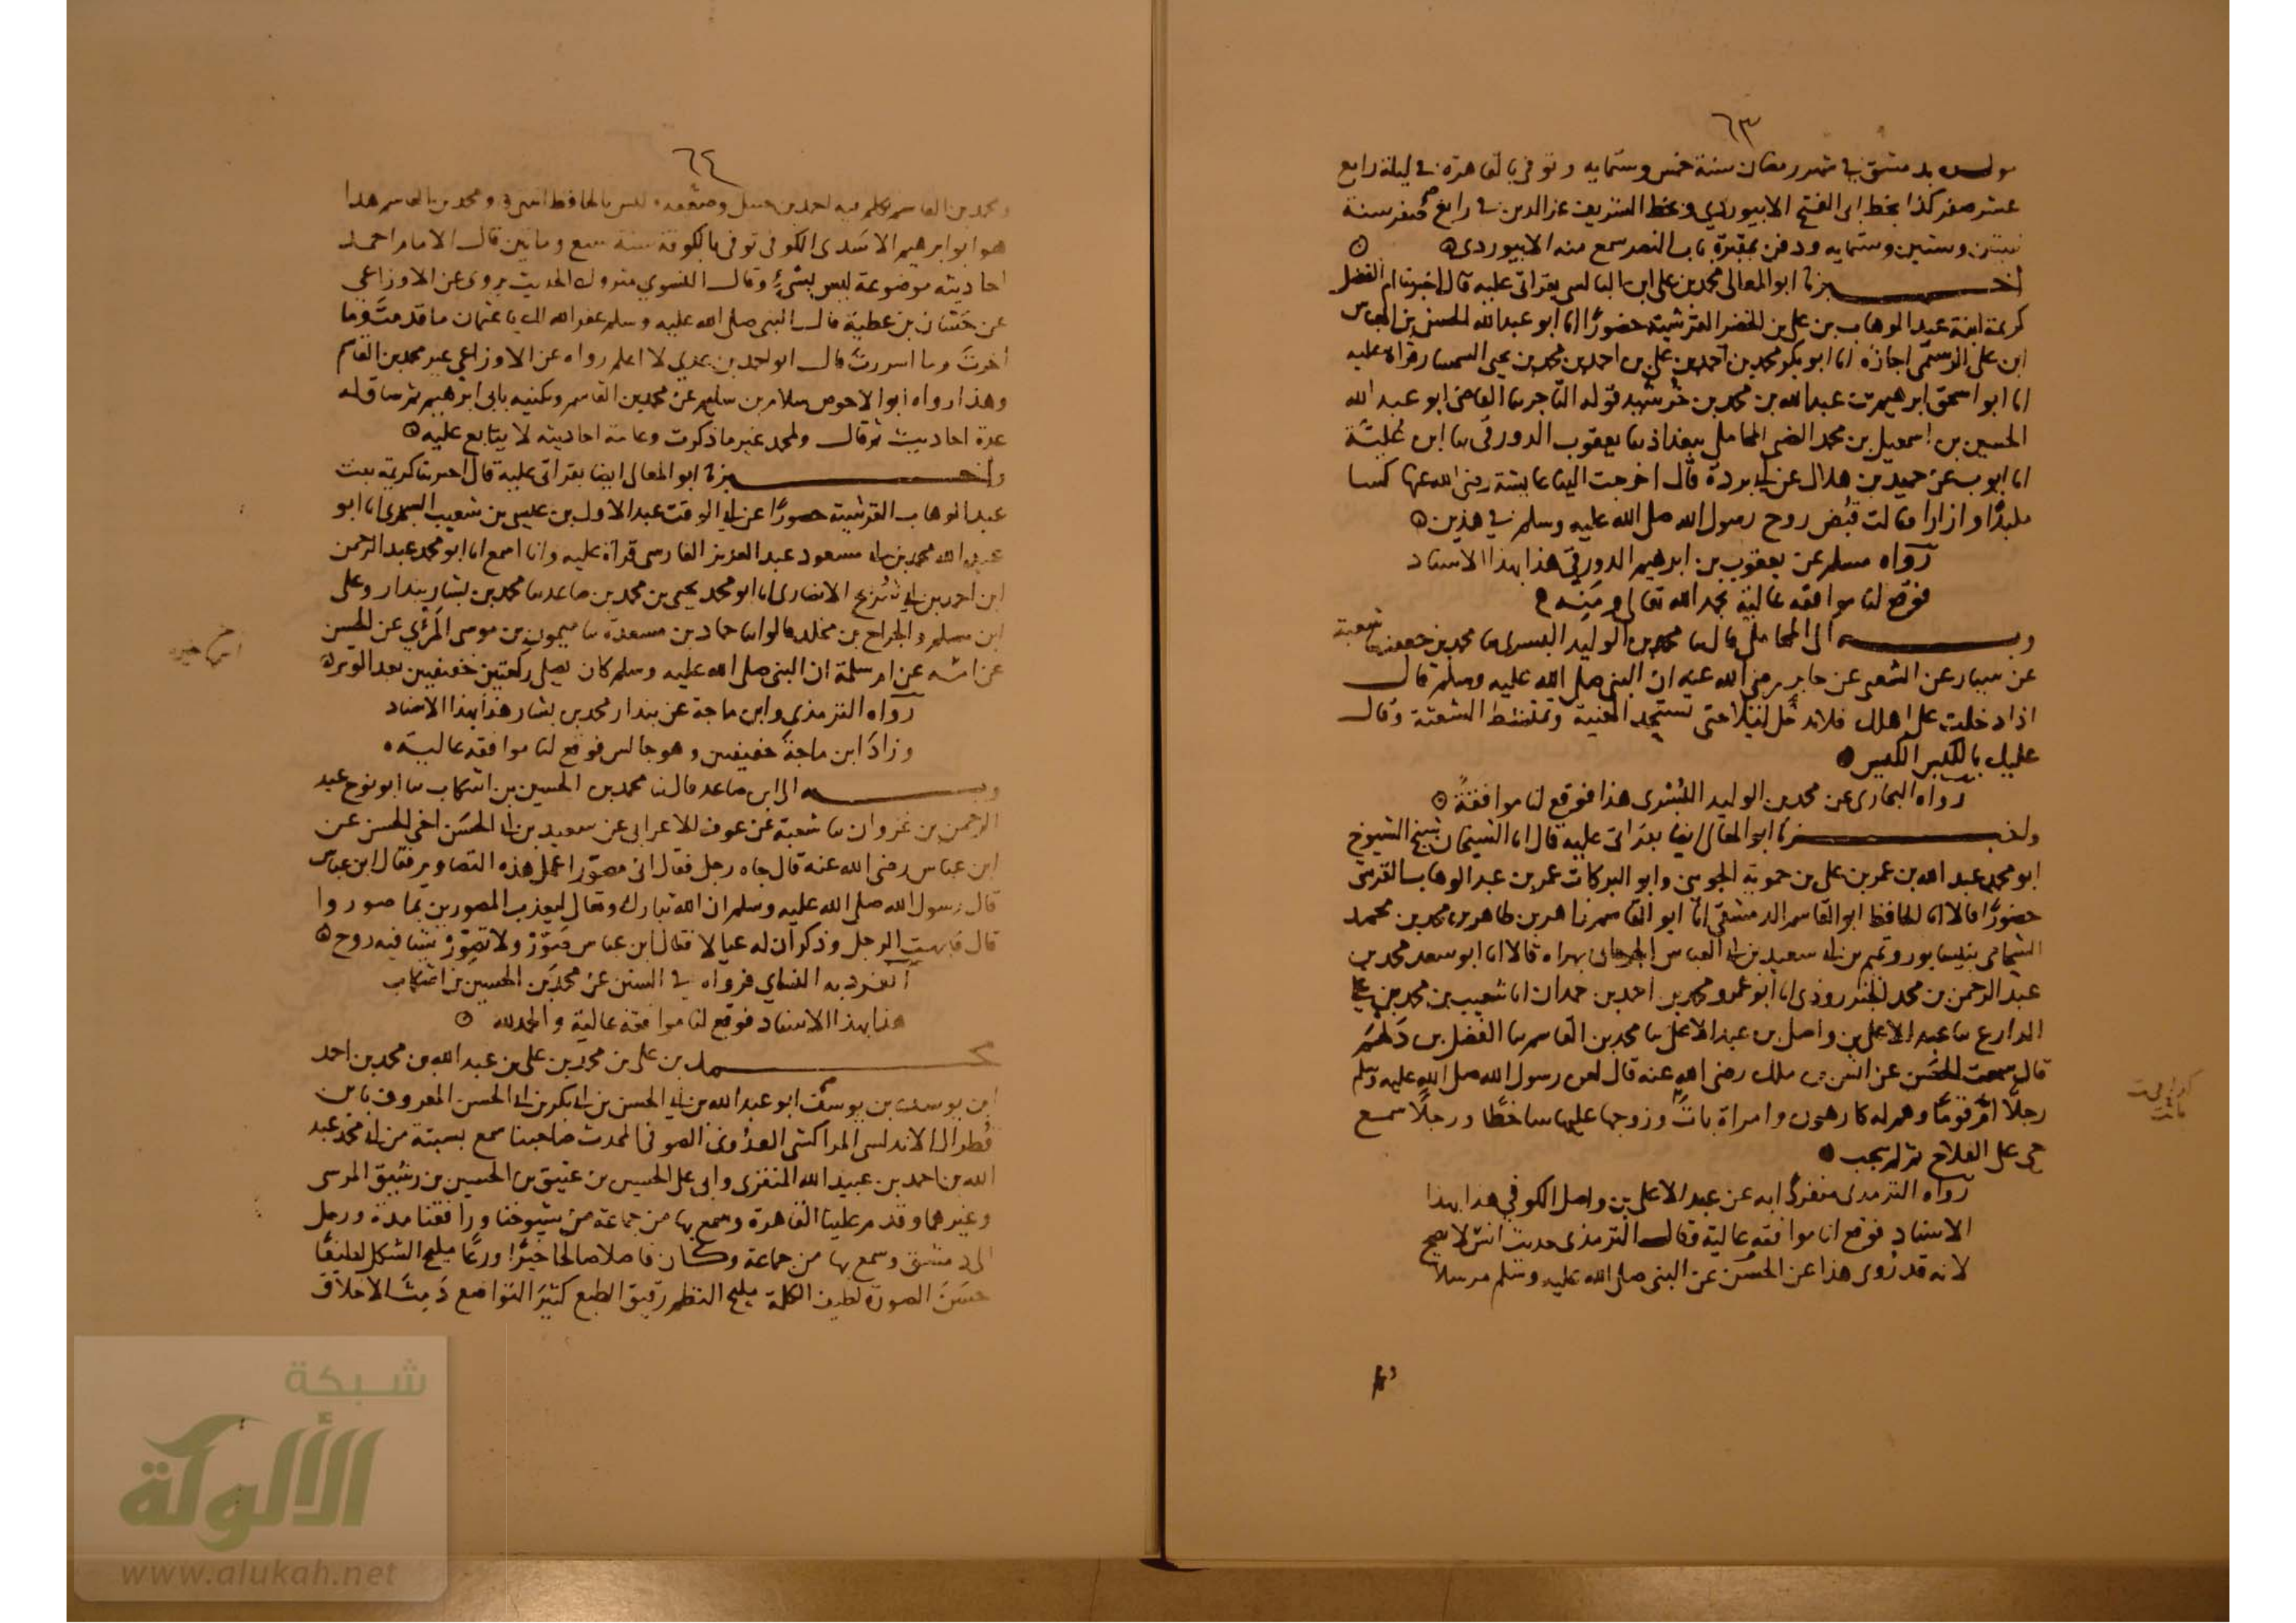 ٦٣
مولده بدمشق في شهر رمضان سنة خمس وستمايه وتوفي بالقاهرة في ليلة رابع
عشر صفر كذا بخط ابي الفتح الابيوردي وبخط الشريف عز الدين في رابع صفر سنة
وستين وستمايه ودفن بمقبرة باب النصر سمع منه الابيوردي
اخبرنا ابو المعالي محمد بن علي ابن البالسي بقراتي عليه قال اخبرتنا ام الفضل
كريمة ابنة عبد الوهاب بن علي بن الخضر القرشية حضورًا انا ابو عبد الله الحسن بن العباس
ابن علي الرستمي اجازة انا ابو بكر محمد بن احمد بن علي بن احمد بن محمد بن يحيى السمسار قراة عليه
انا ابو اسحق ابرهيم بن عبد الله بن محمد بن خرشيد قوله التاجر سا القاضي ابو عبد الله
الحسين بن اسمعيل بن محمد الضبي المحاملي ببغداذ سا يعقوب الدورقي سا ابن علية
انا ايوب عن حميد بن هلال عن ابي بردة قال اخرجت الينا عايشة رضي الله عنها كسا
ملبدًا وازارا فقالت قبض روح رسول الله صلى الله عليه وسلم في هذين
رواه مسلم عن يعقوب بن ابرهيم الدورقي هذا بهذا الاسناد
فوقع لنا موافقة عالية بحمد الله تعالى ومنه
وبه الى المحاملي قال سا محمد بن الوليد البسري سا محمد بن جعفر سا شعبة
عن سيار عن الشعبي عن جابر رضي الله عنه ان النبي صلى الله عليه وسلم قال
اذا دخلت على اهلك فلا تدخل ليلا حتى تستحد المغيبة وتمتشط الشعثة وقال
عليك بالكيس الكيس
رواه البخاري عن محمد بن الوليد البسري هذا فوقع لنا موافقة
واخبرنا ابو المعالي ايضا بقراتي عليه قال انا الشيخان شيخ الشيوخ
ابو محمد عبد الله بن عمر بن علي بن حموية الجويني وابو البركات عمر بن عبد الوهاب القرشي
حضورًا قالا انا الحافظ ابو القاسم الدمشقي انا ابو القاسم زاهر بن طاهر بن محمد بن محمد
الشحامي بنيسابور وتميم بن ابي سعيد بن ابي العباس الجرجاني بهراه قالا انا ابو سعد محمد بن
عبد الرحمن بن محمد الجنزروذي انا ابو عمرو محمد بن احمد بن حمدان انا شعيب بن محمد بن علي
الدارع سا عبد الاعلى بن واصل بن عبد الاعلى سا محمد بن القاسم سا الفضل بن دلهم
قال سمعت الحسن عن انس بن ملك رضي الله عنه قال لعن رسول الله صلى الله عليه وسلم
رجلًا ام قومًا وهم له كارهون وامراة باتت وزوجها عليها ساخطًا ورجلًا سمع
حي على الفلاح ثم لم يجب
رواه الترمذي منفردًا به عن عبد الاعلى بن واصل الكوفي هذا بهذا
الاسناد فوقع لنا موافقة عالية وقال الترمذي حديث انس لا يصح
لانه قد روى هذا عن الحسن عن النبي صلى الله عليه وسلم مرسلًا
٦٤
ومحمد بن القاسم تكلم فيه احمد بن حنبل وضعفه وليس بالحافظ انتهى ومحمد بن القاسم هذا
هو ابو ابرهيم الاسدي الكوفي توفي بالكوفة سنة سبع وماتين قال الامام احمد
احاديثه موضوعة ليس بشيء وقال النسوي متروك الحديث يروي عن الاوزاعي
عن حسان بن عطية قال النبي صلى الله عليه وسلم غفر الله لك يا عثمان ما قدمت وما
اخرت وما اسررت قال ابو احمد بن عدي لا اعلم رواه عن الاوزاعي غير محمد بن القاسم
وهذا رواه ابو الاحوص سلام بن سليم عن محمد بن القاسم ويكنيه بابي ابرهيم ثم ساق له
عدة احاديث ثم قال ولمحمد غير ما ذكرت وعامة احاديثه لا يتابع عليه
واخبرنا ابو المعالي ايضا بقراتي عليه قال اخبرتنا كريمة بنت
عبد الوهاب القرشية حضورًا عن ابي الوقت عبد الاول بن عيسى بن شعيب السجزي انا ابو
عبد الله محمد بن ابي مسعود عبد العزيز الفارسي قراة عليه وانا اسمع انا ابو محمد عبد الرحمن
ابن احمد بن ابي شريح الانصاري انا ابو محمد يحيى بن محمد بن صاعد سا محمد بن بشار بندار وعلي
ابن مسلم والجراح بن مخلد قالوا سا حماد بن مسعدة سا ميمون بن موسى المرئي عن الحسن
عن امه عن ام سلمة ان النبي صلى الله عليه وسلم كان يصلي ركعتين خفيفتين بعد الوتر
رواه الترمذي وابن ماجة عن بندار محمد بن بشار هذا بهذا الاسناد
وزاد ابن ماجة خفيفتين وهو جالس فوقع لنا موافقة عالية
وبه الى ابن صاعد قال سا محمد بن الحسين بن اشكاب سا ابو نوح عبد
الرحمن بن غزوان سا شعبة عن عوف الاعرابي عن سعيد بن ابي الحسن اخي الحسن عن
ابن عباس رضي الله عنه قال جاه رجل فقال اني مصور اعمل هذه التصاوير فقال ابن عباس
قال رسول الله صلى الله عليه وسلم ان الله تبارك وتعالى ليعذب المصورين بما صوروا
قال فابهت الرجل وذكر ان له عيالا فقال ابن عباس صور ولا تصور شيئا فيه روح
انفرد به النساي فرواه في السنن عن محمد بن الحسين بن اشكاب
هذا بهذا الاسناد فوقع لنا موافقة عالية والحمد لله
محمد بن علي بن محمد بن علي بن عبد الله بن محمد بن احمد
ابن يوسف بن يوسف ابو عبد الله بن ابي الحسن بن ابي بكر بن ابي الحسن المعروف بابن
قطرال الاندلسي المراكشي الصوفي المحدث صاحبنا سمع بسبتة من ابي محمد عبد
الله بن احمد بن عبيد الله المنفزي وابي علي الحسين بن عتيق بن الحسين بن رشيق المرسي
وغيرهما وقدم علينا القاهرة وسمع بها من جماعة من شيوخنا ورافقنا مدة ورحل
الى دمشق وسمع بها من جماعة وكان فاضلا صالحا خيرًا ورعًا مليح الشكل لطيفًا
حسن الصورة لطيف الكلمة مليح النظم رقيق الطبع كثير التواضع دمث الاخلاق
شبكة
الألوكة
www.alukah.net